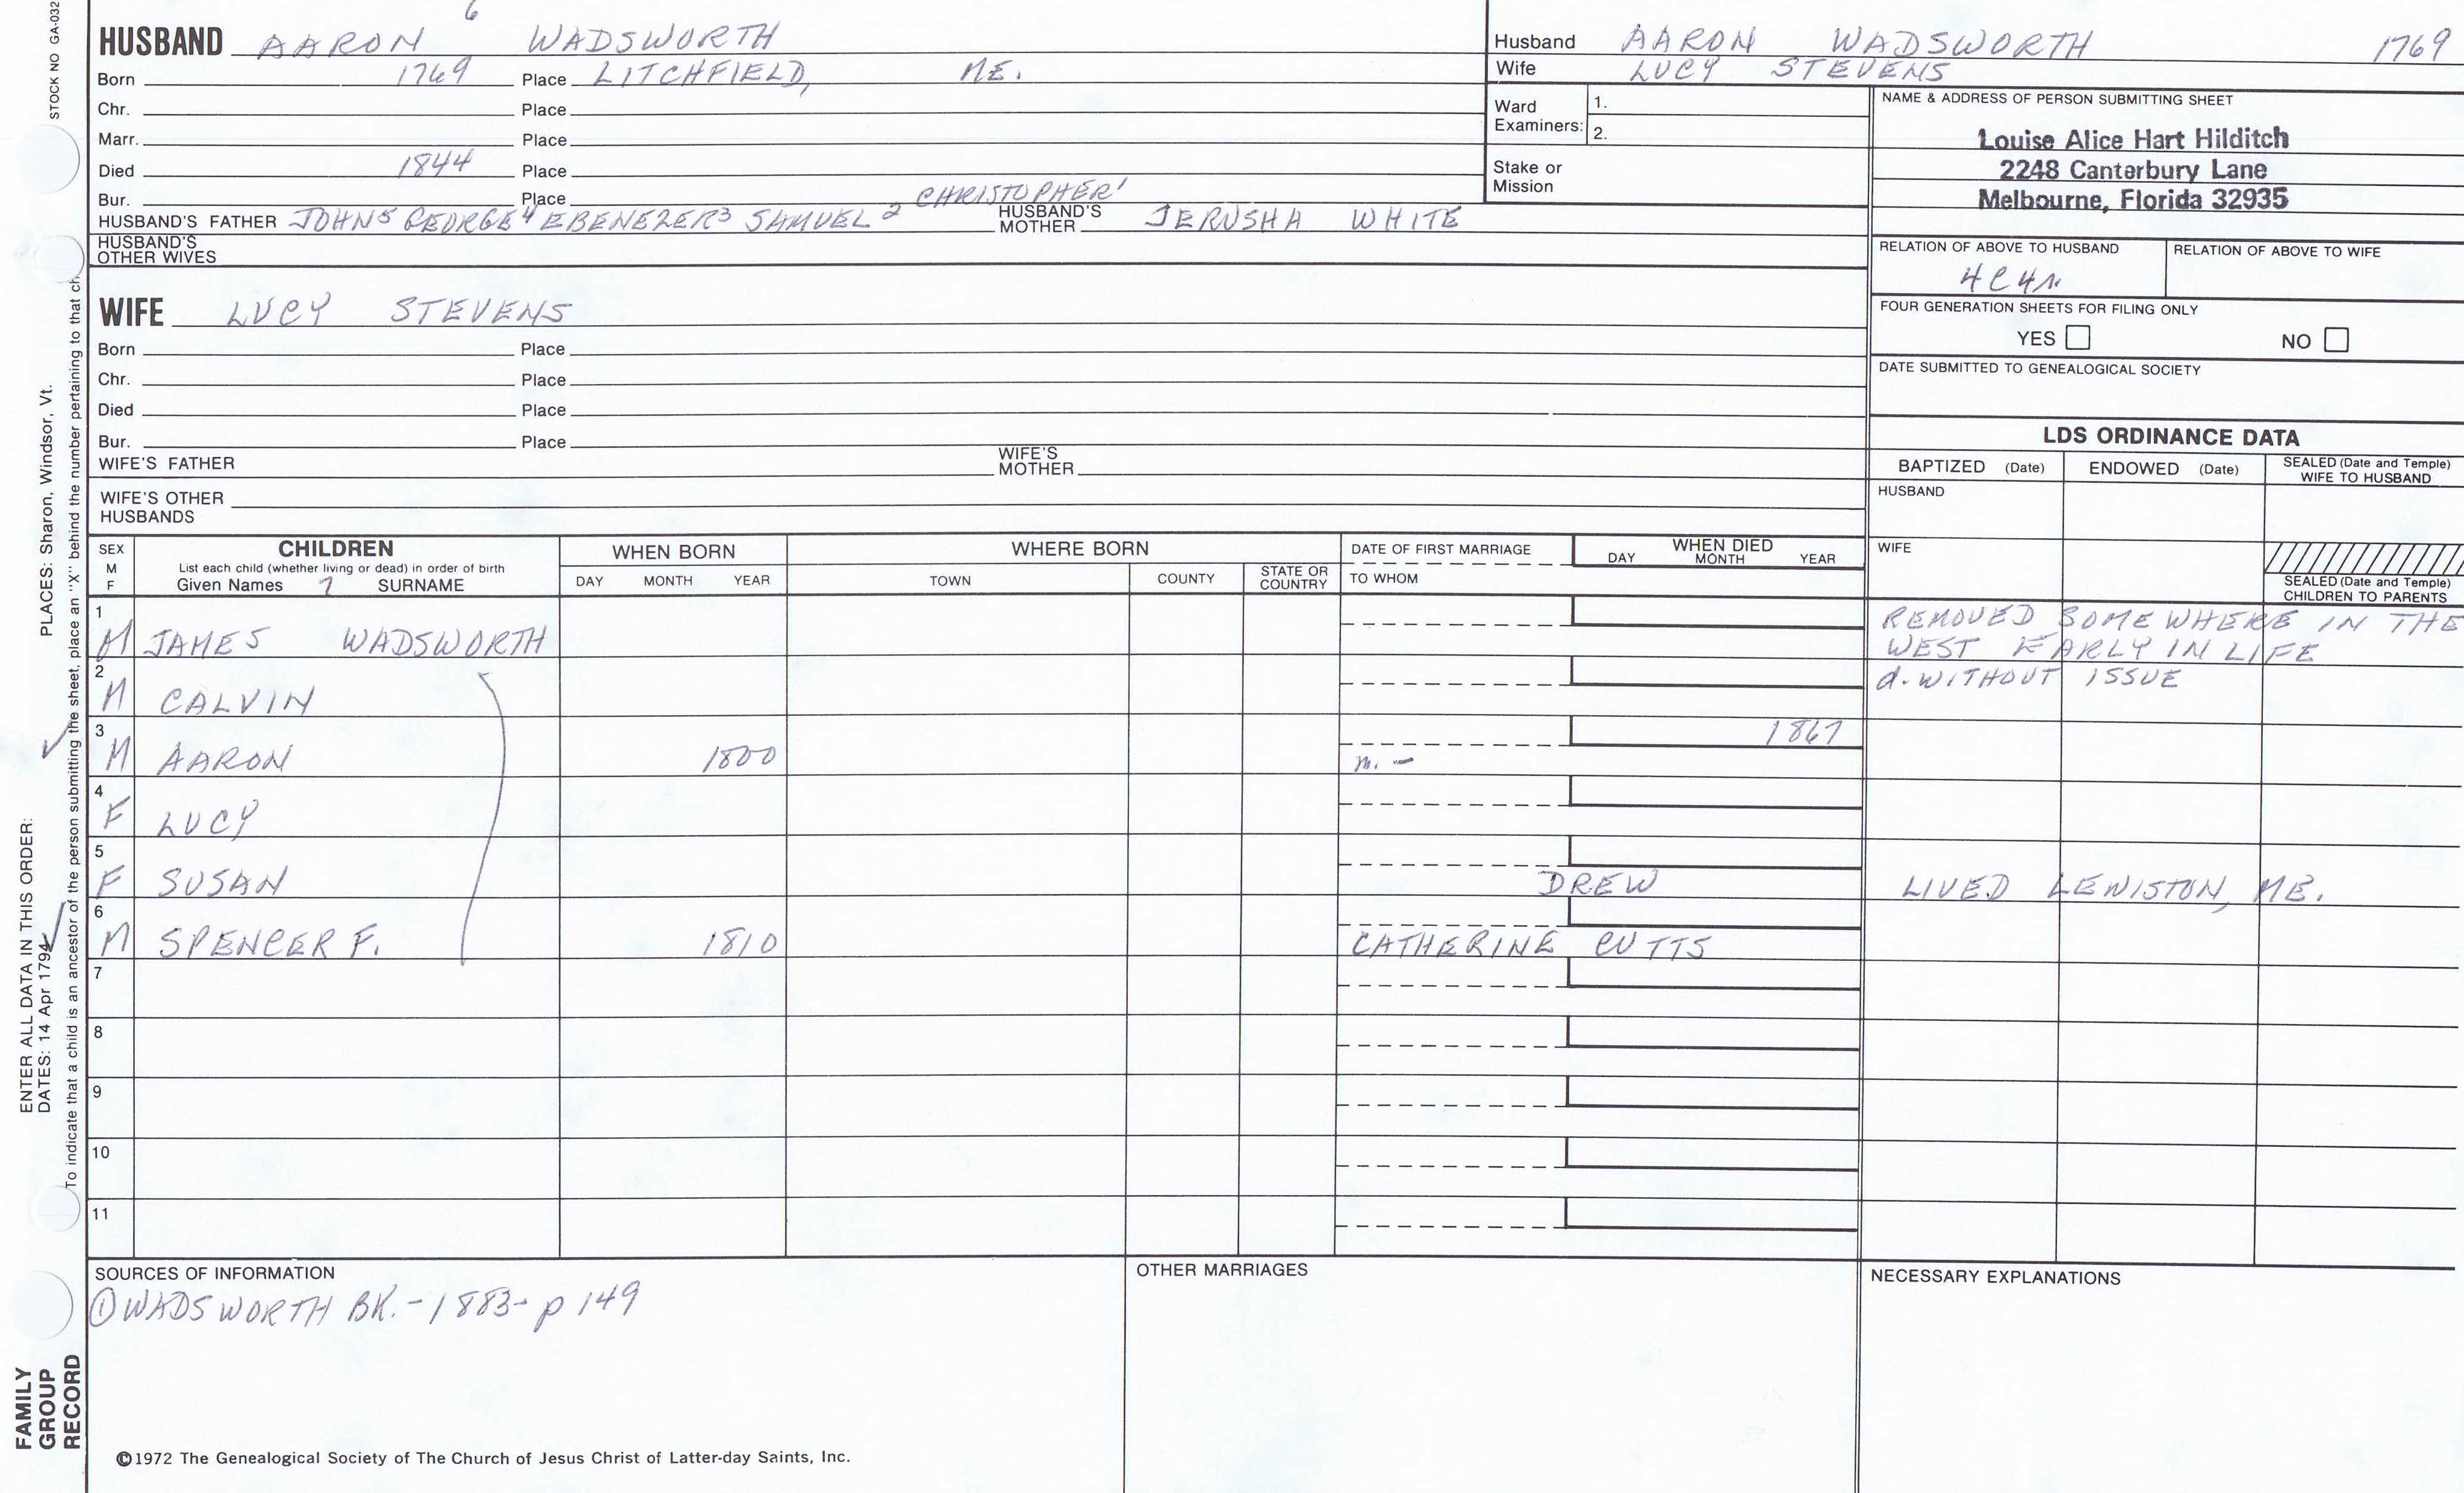 STOCK NO GA-032
6
HUSBAND AARON WADSWORTH
Born 1769 Place LITCHFIELD, ME.
Chr. Place
Marr. Place
Died 1844 Place
Bur. Place
CHRISTOPHER1
HUSBAND'S FATHER JOHN5 GEORGE4 EBENEZER3 SAMUEL2 HUSBAND'S MOTHER JERUSHA WHITE
HUSBAND'S OTHER WIVES
WIFE LUCY STEVENS
Born Place
Chr. Place
Died Place
Bur. Place
WIFE'S FATHER WIFE'S MOTHER
WIFE'S OTHER HUSBANDS
Husband AARON WADSWORTH 1769
Wife LUCY STEVENS
Ward Examiners: 1.
2.
Stake or Mission
NAME & ADDRESS OF PERSON SUBMITTING SHEET
Louise Alice Hart Hilditch
2248 Canterbury Lane
Melbourne, Florida 32935
RELATION OF ABOVE TO HUSBAND RELATION OF ABOVE TO WIFE
4C4r.
FOUR GENERATION SHEETS FOR FILING ONLY
YES NO
DATE SUBMITTED TO GENEALOGICAL SOCIETY
LDS ORDINANCE DATA
BAPTIZED (Date) ENDOWED (Date) SEALED (Date and Temple) WIFE TO HUSBAND
HUSBAND
WIFE
SEALED (Date and Temple) CHILDREN TO PARENTS
SEX M F
CHILDREN
List each child (whether living or dead) in order of birth
Given Names 7 SURNAME
WHEN BORN
DAY MONTH YEAR
WHERE BORN
TOWN COUNTY STATE OR COUNTRY
DATE OF FIRST MARRIAGE
TO WHOM
WHEN DIED
DAY MONTH YEAR
1
M JAMES WADSWORTH REMOVED SOMEWHERE IN THE
WEST EARLY IN LIFE
2
M CALVIN d. WITHOUT ISSUE
3
M AARON 1800 m. - 1867
4
F LUCY
5
F SUSAN DREW LIVED LEWISTON, ME.
6
M SPENCER F. 1810 CATHERINE CUTTS
7
8
9
10
11
SOURCES OF INFORMATION
① WADSWORTH BK. - 1883 - p 149
OTHER MARRIAGES
NECESSARY EXPLANATIONS
©1972 The Genealogical Society of The Church of Jesus Christ of Latter-day Saints, Inc.
FAMILY
GROUP
RECORD
ENTER ALL DATA IN THIS ORDER:
DATES: 14 Apr 1794 PLACES: Sharon, Windsor, Vt.
To indicate that a child is an ancestor of the person submitting the sheet, place an "X" behind the number pertaining to that